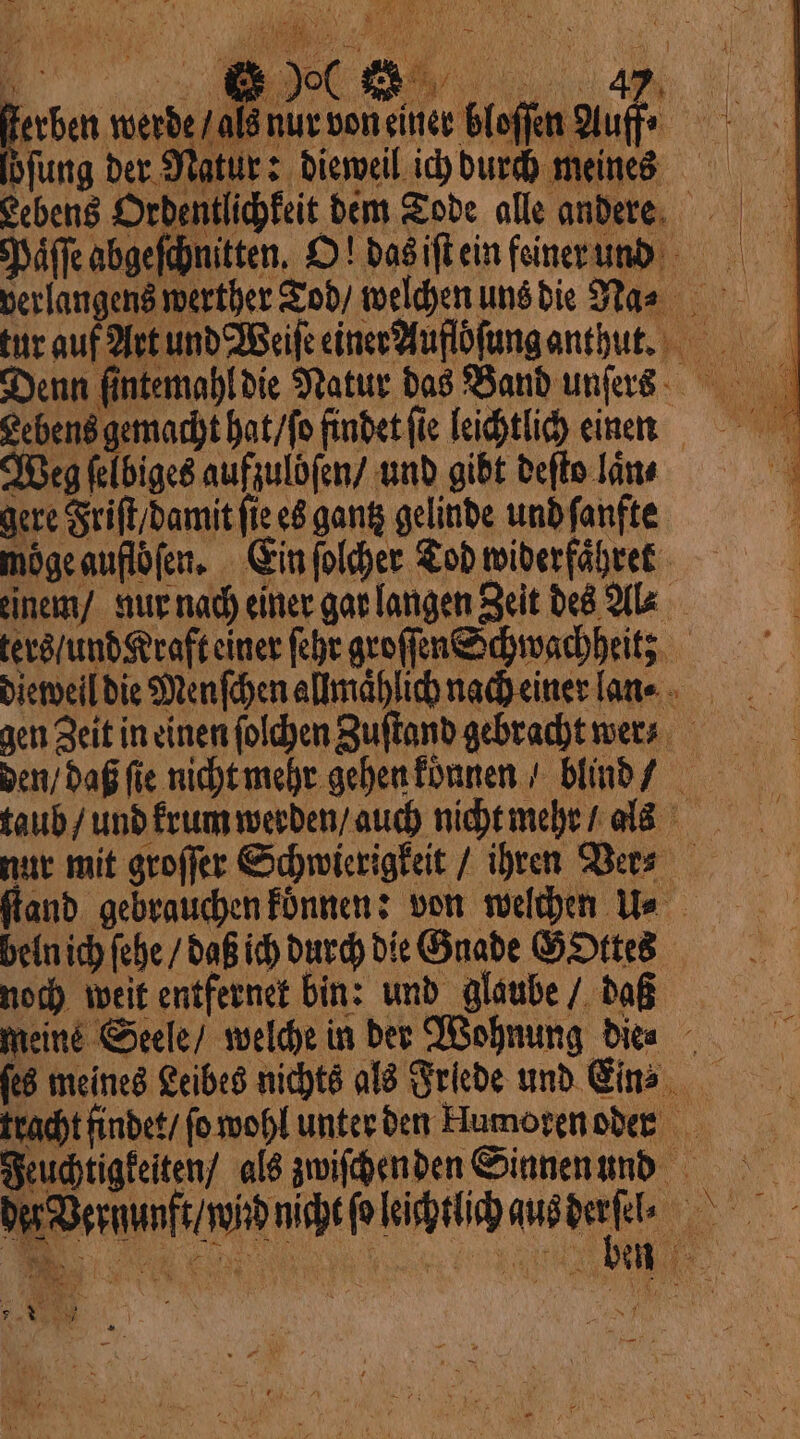 47
ſterben werde / als nur von einer bloſſen Auff-
loͤſung der Natur: dieweil ich durch meines
Lebens Ordentlichkeit dem Tode alle andere
Paͤſſe abgeſchnitten. O! das iſt ein feiner und
verlangens werther Tod / welchen uns die Na-
tur auf Art und Weiſe einer Aufloͤſung anthut.
Denn ſintemahl die Natur das Band unſers
Lebens gemacht hat / ſo findet ſie leichtlich einen
Weg ſelbiges aufzuloͤſen / und gibt deſto laͤn-
gere Friſt / damit ſie es gantz gelinde und ſanfte
moͤge aufloͤſen. Ein ſolcher Tod widerfaͤhret
einem / nur nach einer gar langen Zeit des Al-
ters / und Kraft einer ſehr groſſen Schwachheit;
dieweil die Menſchen allmaͤhlich nach einer lan-
gen Zeit in einen ſolchen Zuſtand gebracht wer-
den / daß ſie nicht mehr gehen koͤnnen / blind /
taub / und krum werden / auch nicht mehr / als
nur mit groſſer Schwierigkeit / ihren Ver-
ſtand gebrauchen koͤnnen: von welchen U-
beln ich ſehe / daß ich durch die Gnade GOttes
noch weit entfernet bin: und glaube / daß
meine Seele / welche in der Wohnung die-
ſes meines Leibes nichts als Friede und Ein-
tracht findet / ſo wohl unter den Humoren oder
Feuchtigkeiten / als zwiſchen den Sinnen und
der Vernunft / wird nicht ſo leichtlich aus derſel-
ben